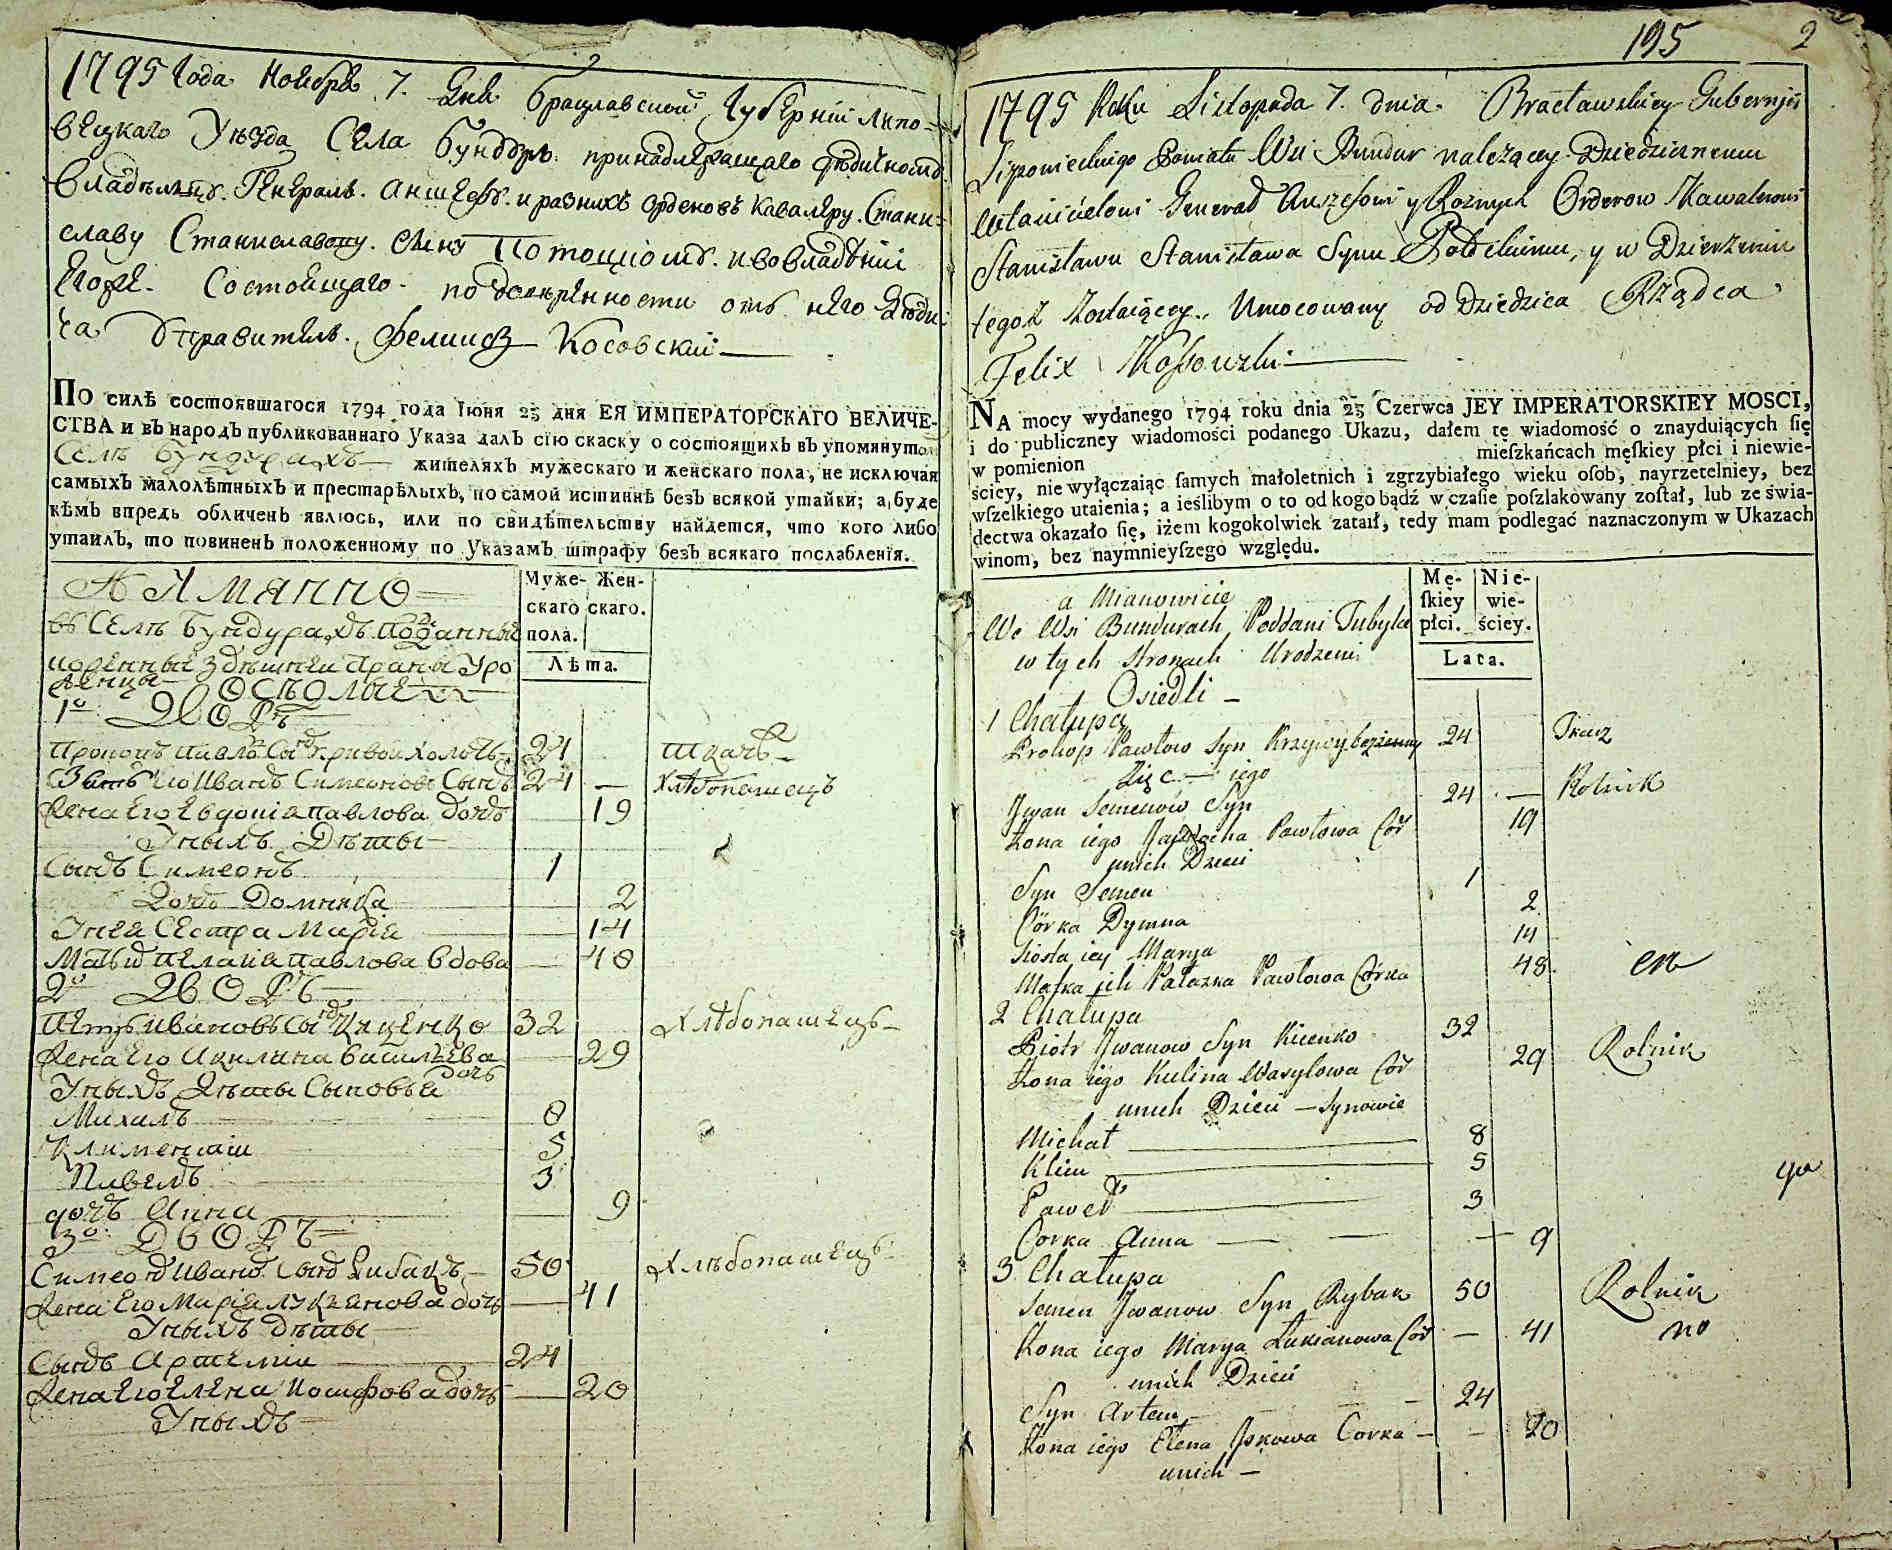 1795 Года Ноября 7. дня Брацлавской Губерніи Липо-
вецкаго Уѣзда Села Бундуръ принадлежащаго
Владѣльцу Генералъ Аншефъ и разныхъ орденовъ Кавалеру Стани-
славу Станиславову сыну Потоцкому и во владѣніи
Его же Состоящаго по довѣренности отъ него Дѣди-
ча Управитель Феликсъ Косовскій
ПО силѣ состоявшагося 1794 года Іюня 23 дня ЕЯ ИМПЕРАТОРСКАГО ВЕЛИЧЕ-
СТВА и въ народъ публикованнаго Указа далъ сію скаску о состоящихъ въ упомянутомъ
Селѣ Бундурахъ жителяхъ мужескаго и женскаго пола, не исключая
самыхъ малолѣтныхъ и престарѣлыхъ, по самой истиннѣ безъ всякой утайки; а буде
кѣмъ впредь обличенъ явлюсь, или по свидѣтельству найдется, что кого либо
утаилъ, то повиненъ положенному по Указамъ штрафу безъ всякаго послабленія.
А Имянно
въ Селѣ Бундурахъ Подданныи
Муже- Жен-
скаго скаго.
пола.
Лѣта.
Уро
женцы Осѣдлые
1о Дворъ
Прокопъ Павловъ Сынъ Кривой 24 Ткачъ
Зять Его Иванъ Симеоновъ Сынъ 24 — Хлѣбопашецъ
Жена Его Евдокія Павлова дочь 19
У нихъ Дѣти
Сынъ Симеонъ 1
Дочь Домника 2
У нея Сестра Марія 14
Мать Пелагія Павлова вдова 48
2о Дворъ
Петръ Ивановъ Сынъ Киценко 32 Хлѣбопашецъ
Жена Его Акилина Васильева дочь 29
У нихъ Дѣти Сыновья
Михаилъ 8
Климентій 5
Павелъ 3
дочь Анна 9
3о Дворъ
Симеонъ Ивановъ Сынъ Рибакъ 50 Хлѣбопашецъ
Жена Его Марія Лукьянова дочь 41
У нихъ дѣти
Сынъ Артемій 24
Жена Его Елена Іосифова дочь 20
У нихъ
195 2
1795 Roku Listopada 7. dnia Bracławskiey Gubernji
Lipowieckiego Powiatu Wsi Bundur należącey Dziedzicznemu
Właścicielowi Generał Anszefowi y Roznych Orderow Kawalerowi
Stanisławu Stanisława Synu Potockiemu, y w Dzierżeniu
tegoż Zostaiącey, Umocowany od Dziedzica Rządca
Felix Kossowski
NA mocy wydanego 1794 roku dnia 23 Czerwca JEY IMPERATORSKIEY MOSCI,
i do publiczney wiadomości podanego Ukazu, dałem tę wiadomość o znayduiących ſię
w pomienion mieſzkańcach męſkiey płci i niewie-
ściey, nie wyłączaiąc ſamych małoletnich i zgrzybiałego wieku oſob, nayrzetelniey, bez
wſzelkiego utaienia; a ieślibym o to od kogo bądź w czaſie poſzlakowany zoſtał, lub ze świa-
dectwa okazało ſię, iżem kogokolwiek zataił, tedy mam podlegać naznaczonym w Ukazach
winom, bez naymnieyſzego względu.
a Mianowicie
We Wsi Bundurach Poddani Tubyla
w tych stronach Urodzeni
Osiedli
Mę- Nie-
ſkiey wie-
płci. ściey.
Lata.
1 Chałupa
Prokop Pawłow Syn Krzywy 24 Tkacz
Zięc iego
Jwan Semenow Syn 24 — Rolnik
Zona iego Pawłowa Cor 19
unich Dzieci
Syn Semen 1
Córka Dymna 2
Siostra iey Marya 14
Matka ich Pałazka Pawłowa Córka 48
2 Chałupa
Piotr Jwanow Syn Kicenko 32 Rolnik
Zona iego Kulina Wasylowa Cor 29
unich Dzieci — Synowie
Michał 8
Klim 5
Paweł 3
Corka Anna 9
3 Chałupa
Semen Jwanow Syn Rybak 50 Rolnik
Zona iego Marya Łukianowa Cor — 41 no
unich Dzieci
Syn Artem 24
Zona iego Elena Corka 20
unich —